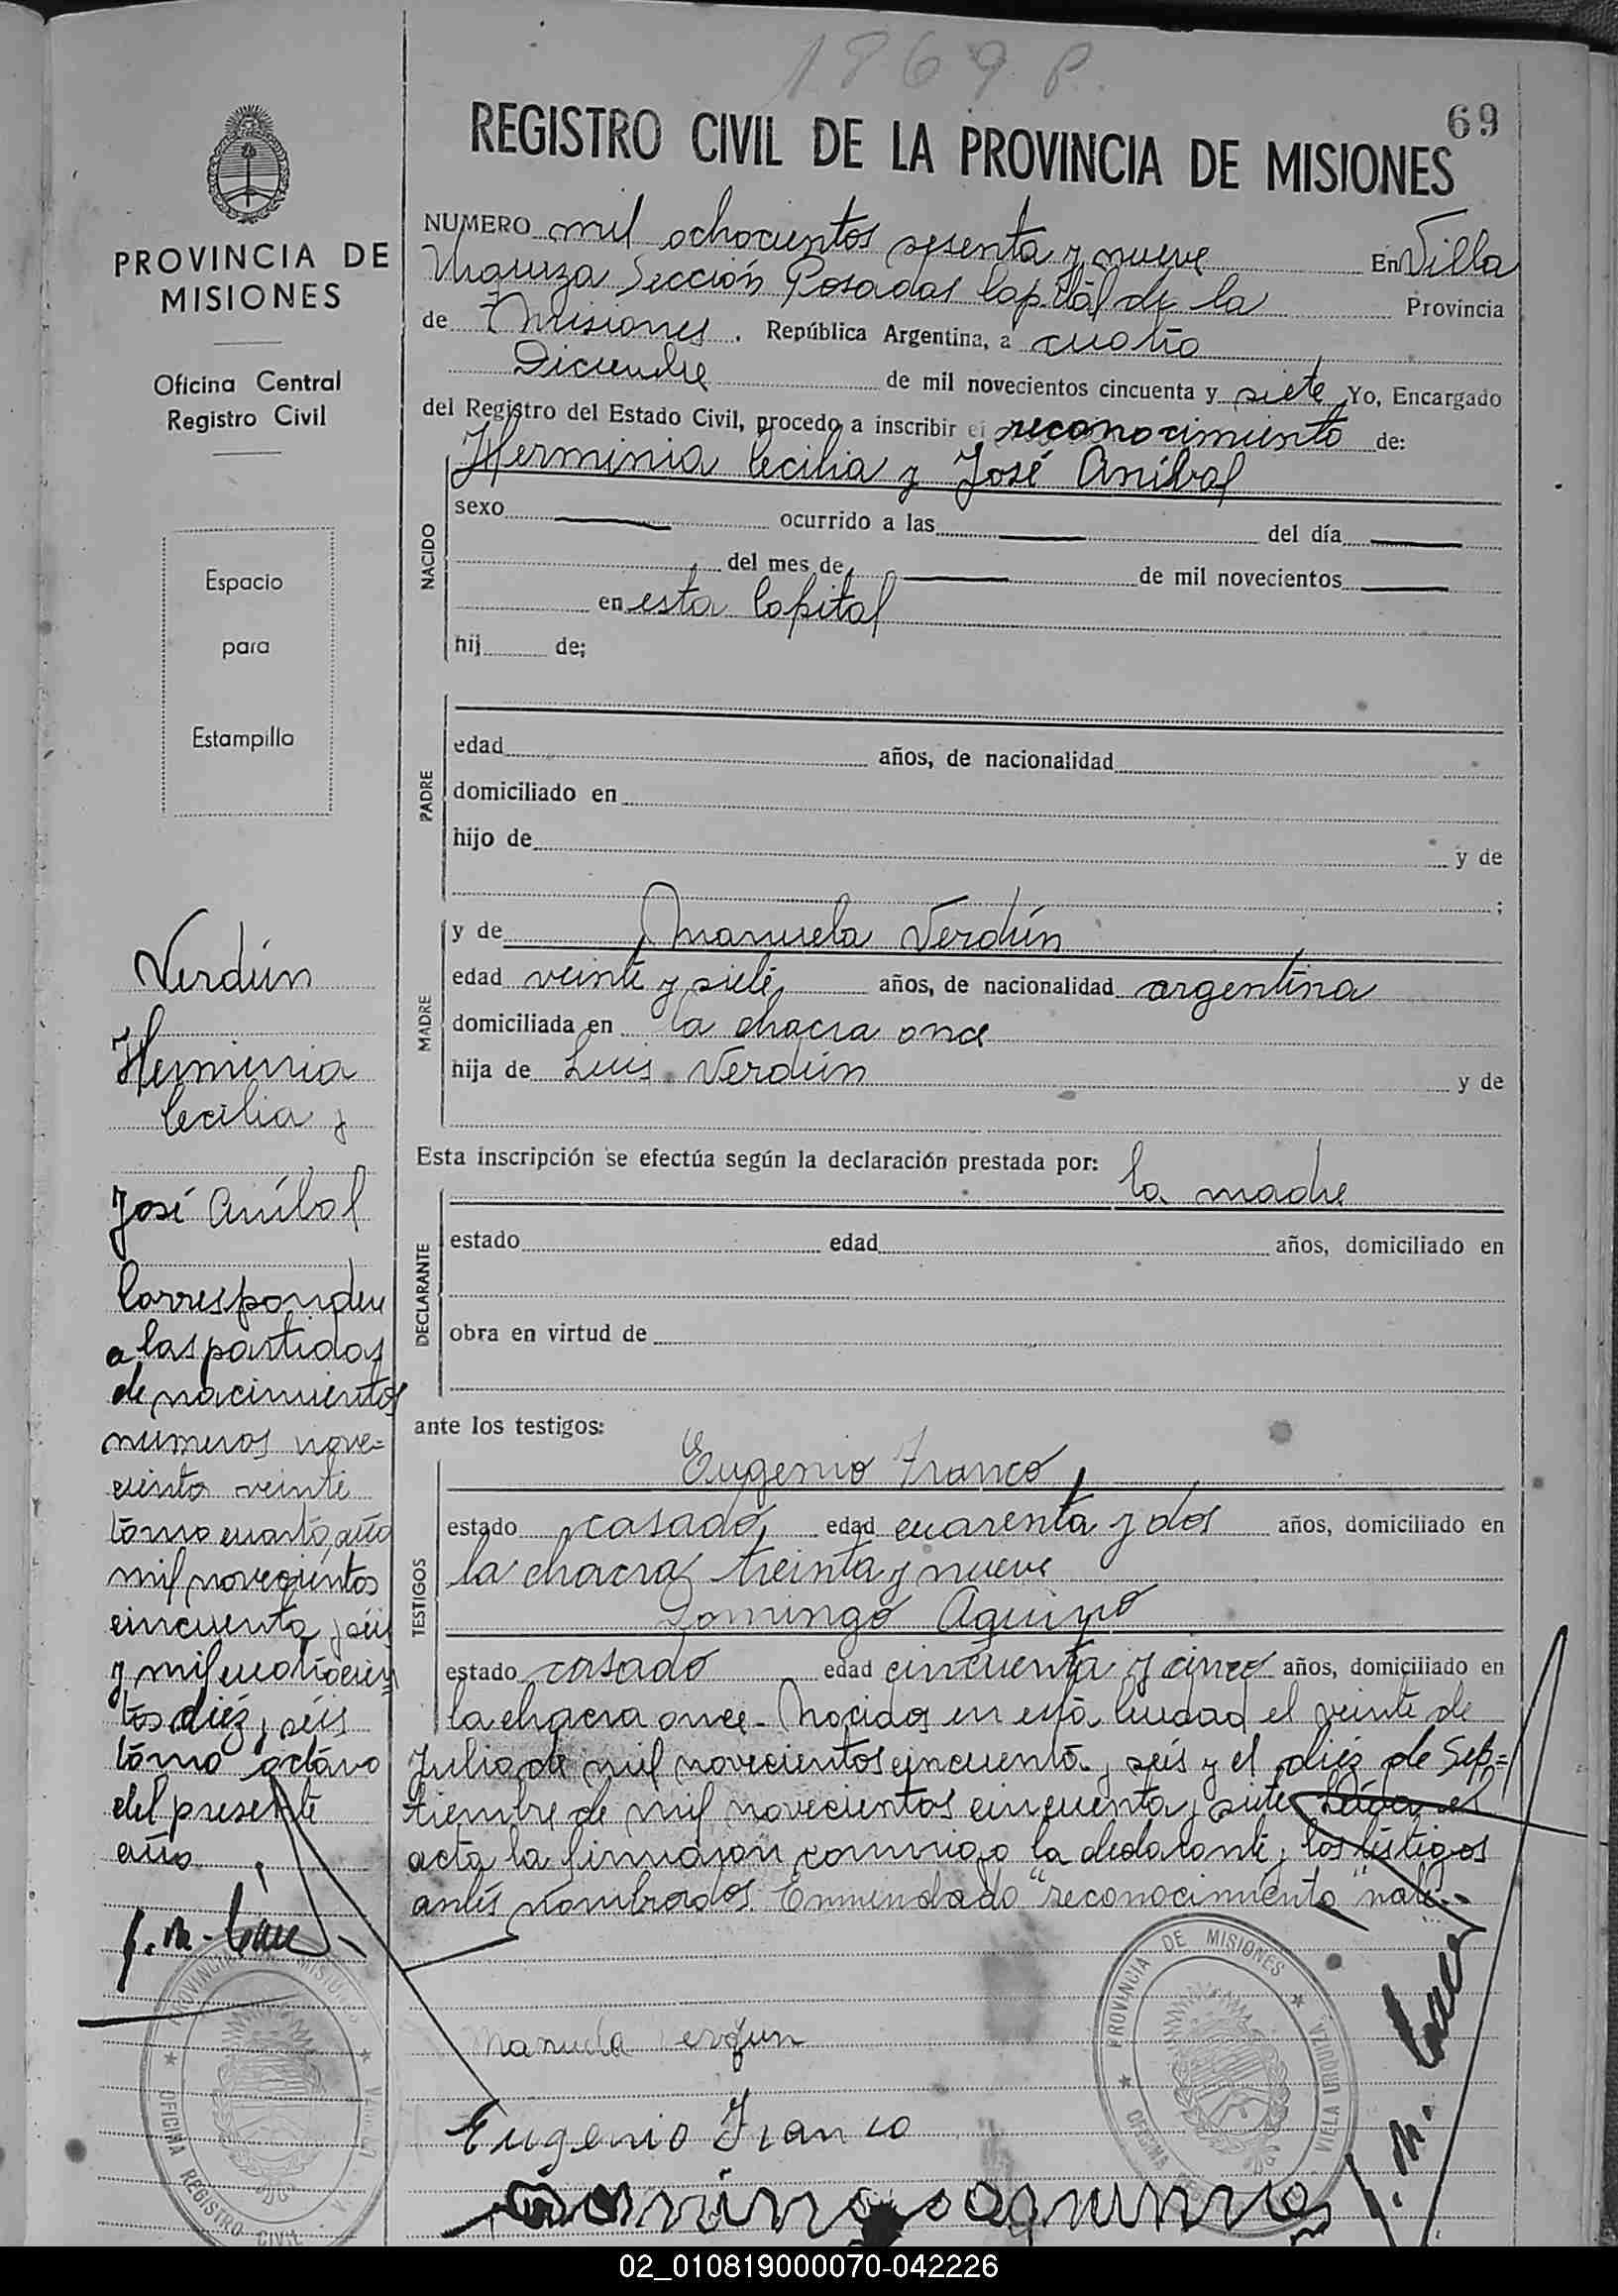 1869 P.
69
REGISTRO CIVIL DE LA PROVINCIA DE MISIONES
PROVINCIA DE
MISIONES
Oficina Central
Registro Civil
Espacio
para
Estampilla
NUMERO mil ochocientos sesenta y nueve En Villa
Urquiza Sección Posadas Capital de la Provincia
de Misiones. República Argentina, a cuatro
Diciembre de mil novecientos cincuenta y siete Yo, Encargado
del Registro del Estado Civil, procedo a inscribir el reconocimiento de:
Herminia Cecilia y José Aníbal
NACIDO
sexo ocurrido a las del día
del mes de de mil novecientos
en esta Capital
hij de:
PADRE
edad años, de nacionalidad
domiciliado en
hijo de y de
;
MADRE
y de Manuela Verdún
edad veinte y siete años, de nacionalidad argentina
domiciliada en la chacra once
hija de Luis Verdún y de
Esta inscripción se efectúa según la declaración prestada por: la madre
DECLARANTE
estado edad años, domiciliado en
obra en virtud de
ante los testigos:
TESTIGOS
Eugenio Franco
estado casado, edad cuarenta y dos años, domiciliado en
la chacra treinta y nueve
Domingo Aquino
estado casado edad cincuenta y cinco años, domiciliado en
la chacra once - Nacidos en esta ciudad el veinte de
Julio de mil novecientos cincuenta y seis y el diez de Sep=
tiembre de mil novecientos cincuenta y siete Leída el
acta la firmaron conmigo la declarante y los testigos
antes nombrados. Enmendado "reconocimiento" vale.-
Manuela Verdun
Eugenio Franco
Domingo Aquino
Verdún
Herminia
Cecilia y
José Aníbal
Corresponden
a las partidas
de nacimientos
numeros nove=
ciento veinte
tomo cuarto, año
mil novecientos
cincuenta y seis
y mil cuatrocien=
tos diez y seis
tomo octavo
del presente
año.
PROVINCIA DE MISIONES
OFICINA REGISTRO CIVIL
PROVINCIA DE MISIONES
VILLA URQUIZA
OFICINA
02_010819000070-042226